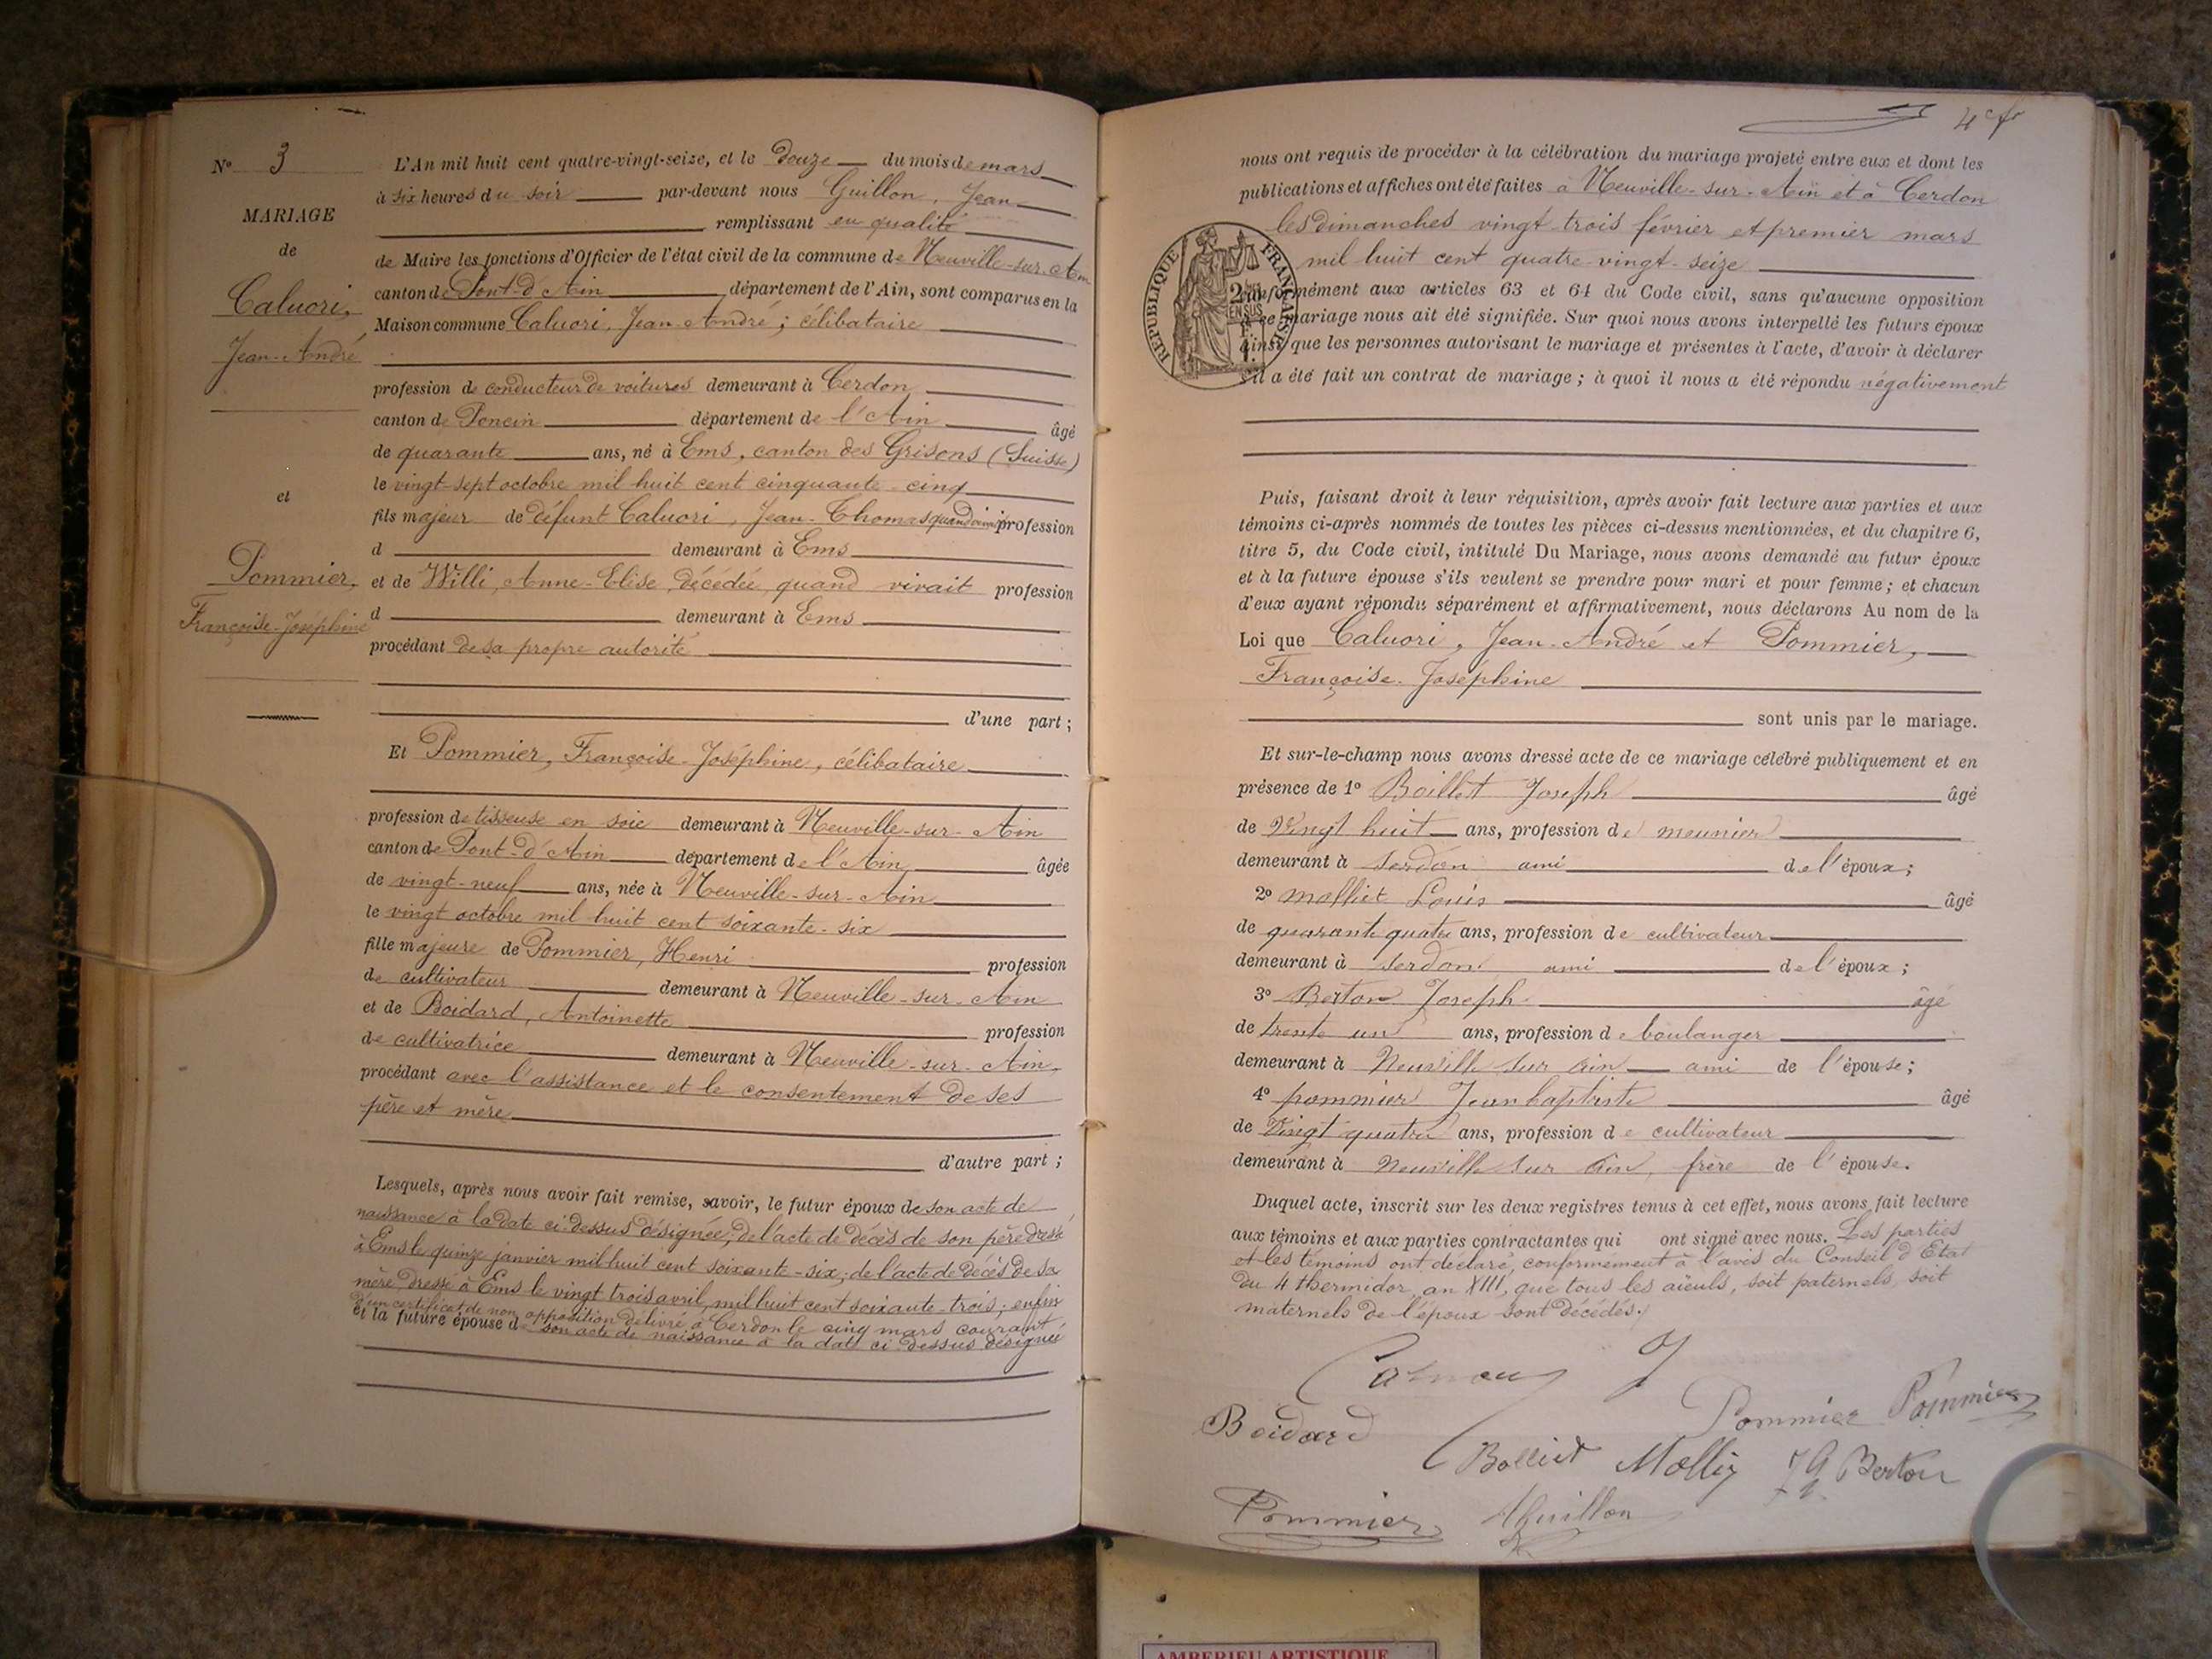 N° 3
MARIAGE
de
Caluori,
Jean-André
et
Pommier,
Françoise-Joséphine
L'An mil huit cent quatre-vingt-seize, et le Douze du mois de mars
à six heures du soir par-devant nous Guillon, Jean
remplissant en qualité
de Maire les fonctions d'Officier de l'état civil de la commune de Neuville-sur-Ain
canton de Pont-d'Ain département de l'Ain, sont comparus en la
Maison commune Caluori, Jean-André; célibataire
profession de conducteur de voitures demeurant à Cerdon
canton de Poncin département de l'Ain âgé
de quarante ans, né à Ems, canton des Grisons (Suisse)
le vingt-sept octobre mil huit cent cinquante-cinq
fils majeur de défunt Caluori, Jean-Thomas quand vivait profession
d demeurant à Ems
et de Willi, Anne-Elise, décédée, quand vivait profession
d demeurant à Ems
procédant de sa propre autorité
d'une part;
Et Pommier, Françoise-Joséphine, célibataire
profession de tisseuse en soie demeurant à Neuville-sur-Ain
canton de Pont-d'Ain département de l'Ain âgée
de vingt-neuf ans, née à Neuville-sur-Ain
le vingt octobre mil huit cent soixante-six
fille majeure de Pommier, Henri profession
de cultivateur demeurant à Neuville-sur-Ain
et de Boidard, Antoinette profession
de cultivatrice demeurant à Neuville-sur-Ain,
procédant avec l'assistance et le consentement de ses
père et mère
d'autre part;
Lesquels, après nous avoir fait remise, savoir, le futur époux de son acte de
naissance à la date ci-dessus désignée; de l'acte de décès de son père dressé
à Ems le quinze janvier mil huit cent soixante-six; de l'acte de décès de sa
mère dressé à Ems le vingt trois avril mil huit cent soixante-trois; enfin
d'un certificat de non opposition délivré à Cerdon le cinq mars courant
et la future épouse de son acte de naissance à la date ci-dessus désignée
4e fr
nous ont requis de procéder à la célébration du mariage projeté entre eux et dont les
publications et affiches ont été faites à Neuville-sur-Ain et à Cerdon
les dimanches vingt trois février et premier mars
mil huit cent quatre-vingt-seize
RÉPUBLIQUE FRANÇAISE
conformément aux articles 63 et 64 du Code civil, sans qu'aucune opposition
à ce mariage nous ait été signifiée. Sur quoi nous avons interpellé les futurs époux
ainsi que les personnes autorisant le mariage et présentes à l'acte, d'avoir à déclarer
s'il a été fait un contrat de mariage; à quoi il nous a été répondu négativement
Puis, faisant droit à leur réquisition, après avoir fait lecture aux parties et aux
témoins ci-après nommés de toutes les pièces ci-dessus mentionnées, et du chapitre 6,
titre 5, du Code civil, intitulé Du Mariage, nous avons demandé au futur époux
et à la future épouse s'ils veulent se prendre pour mari et pour femme; et chacun
d'eux ayant répondu séparément et affirmativement, nous déclarons Au nom de la
Loi que Caluori, Jean-André et Pommier,
Françoise-Joséphine
sont unis par le mariage.
Et sur-le-champ nous avons dressé acte de ce mariage célébré publiquement et en
présence de 1° Joseph âgé
de Vingt huit ans, profession de meunier
demeurant à serdon ami de l'époux;
2° Louis âgé
de quarante quatre ans, profession de cultivateur
demeurant à serdon ami de l'époux;
3° Berton Joseph âgé
de trente un ans, profession de boulanger
demeurant à Neuville sur ain ami de l'épouse;
4° pommier Jean baptiste âgé
de Vingt quatre ans, profession de cultivateur
demeurant à Neuville sur Ain, frère de l'épouse.
Duquel acte, inscrit sur les deux registres tenus à cet effet, nous avons fait lecture
aux témoins et aux parties contractantes qui ont signé avec nous. Les parties
et les témoins ont déclaré, conformément à l'avis du Conseil d'Etat
du 4 thermidor, an XIII, que tous les aïeuls, soit paternels, soit
maternels de l'époux sont décédés.
Boidard
Pommier Pommier
Bolliet Berton
Pommier Guillon
AMBERIEU ARTISTIQUE